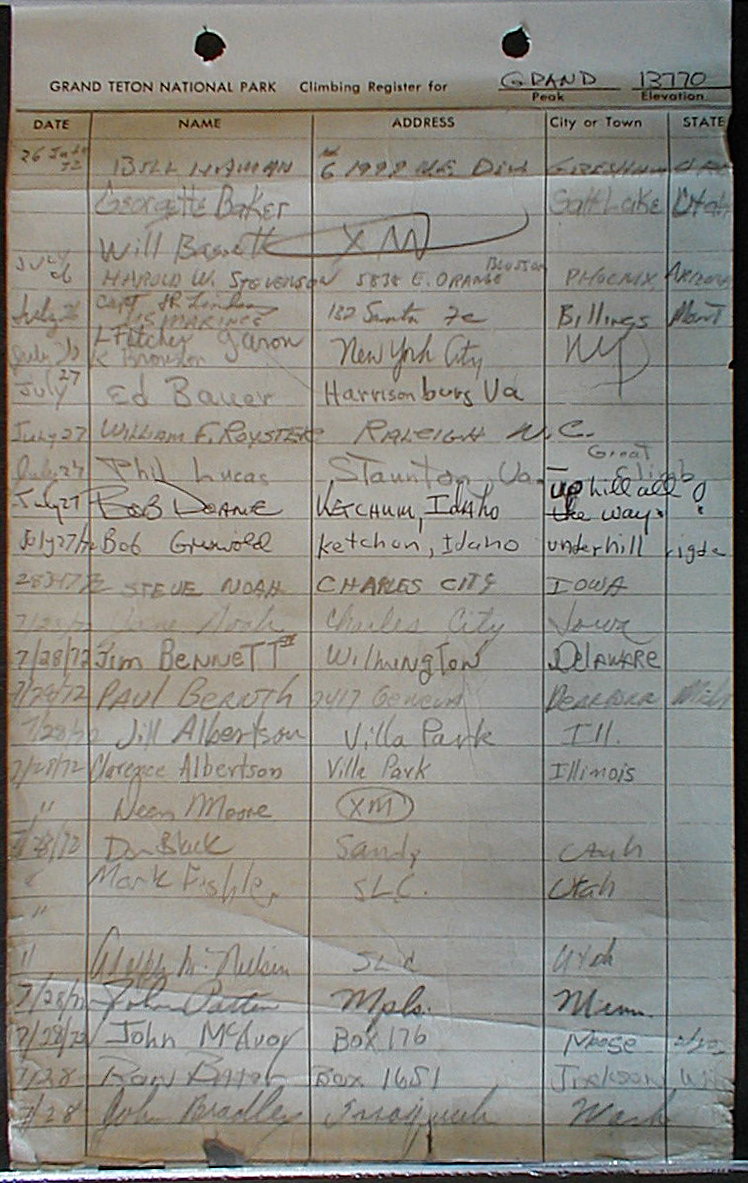 GRAND TETON NATIONAL PARK Climbing Register for GRAND 13770
Peak Elevation
DATE NAME ADDRESS City or Town STATE
26 BILL
Georgette Baker Salt Lake Utah
Will XM
July 26 HAROLD W. STEVENSON 5838 E. ORANGE Blossom PHOENIX ARIZONA
July Capt 132 Santa Fe Billings Mont
July L Fletcher New York City NY
July 27 Ed Bauer Harrisonburg Va
July 27 WILLIAM F. ROYSTER RALEIGH N.C.
July 27 Phil Lucas Staunton, Va. Great Climb
July 27 BOB DEANE KETCHUM, IDAHO up hill all the way!
July 27/72 Bob Griswold Ketchum, Idaho underhill
STEVE NOAH CHARLES CITY IOWA
Noah Charles City Iowa
7/28/72 Jim BENNETT Wilmington DELAWARE
7/28/72 PAUL 7417
7/28/72 Jill Albertson Villa Park Ill.
7/28/72 Clarence Albertson Villa Park Illinois
" Moore XM
7/28/72 Don Black Sandy Utah
" Mark SLC. Utah
"
" SLC Utah
7/28/72 John Patten Mpls. Minn.
7/28/72 John McAvoy Box 176 Moose
7/28 Ron Box 1651 Jackson
7/28 John Bradley Wash